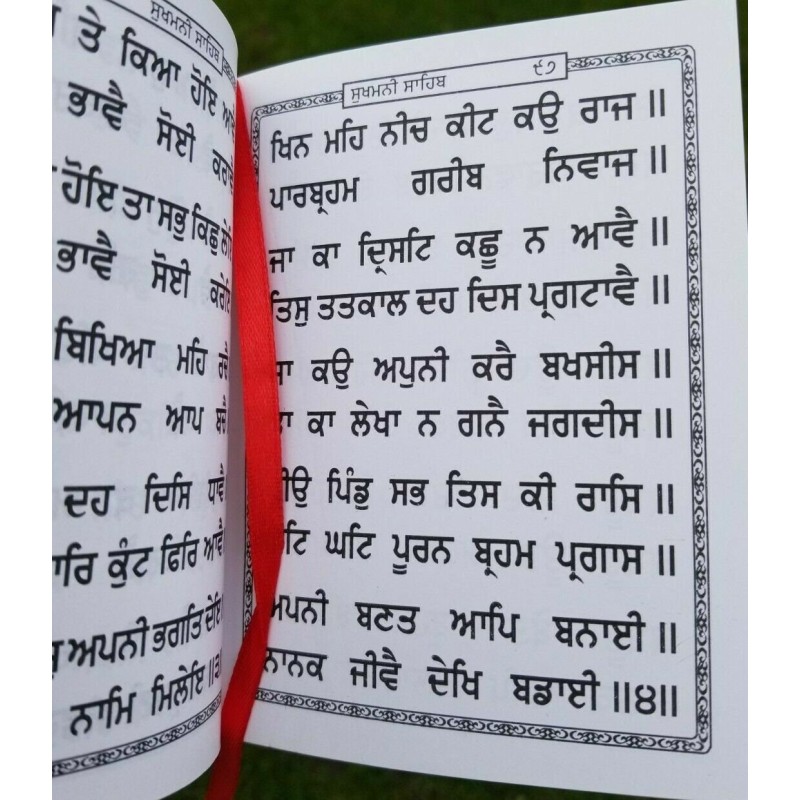 ਸੁਖਮਨੀ ਸਾਹਿਬ
ਤੇ ਕਿਆ ਹੋਇ
ਭਾਵੈ ਸੋਈ
ਹੋਇ ਤਾ ਸਭੁ ਕਿਛੁ
ਭਾਵੈ ਸੋਈ
ਬਿਖਿਆ ਮਹਿ
ਆਪਨ ਆਪ
ਦਹ ਦਿਸਿ ਧਾਵੈ
ਕੁੰਟ ਫਿਰਿ ਆਵੈ
ਅਪਨੀ ਭਗਤਿ ਦੇਇ
ਨਾਮਿ ਮਿਲੇਇ ॥੩॥
ਸੁਖਮਨੀ ਸਾਹਿਬ ੯੭
ਖਿਨ ਮਹਿ ਨੀਚ ਕੀਟ ਕਉ ਰਾਜ ॥
ਪਾਰਬ੍ਰਹਮ ਗਰੀਬ ਨਿਵਾਜ ॥
ਜਾ ਕਾ ਦ੍ਰਿਸਟਿ ਕਛੂ ਨ ਆਵੈ ॥
ਤਿਸੁ ਤਤਕਾਲ ਦਹ ਦਿਸ ਪ੍ਰਗਟਾਵੈ ॥
ਜਾ ਕਉ ਅਪੁਨੀ ਕਰੈ ਬਖਸੀਸ ॥
ਕਾ ਲੇਖਾ ਨ ਗਨੈ ਜਗਦੀਸ ॥
ਜੀਉ ਪਿੰਡੁ ਸਭ ਤਿਸ ਕੀ ਰਾਸਿ ॥
ਘਟਿ ਘਟਿ ਪੂਰਨ ਬ੍ਰਹਮ ਪ੍ਰਗਾਸ ॥
ਅਪਨੀ ਬਣਤ ਆਪਿ ਬਨਾਈ ॥
ਨਾਨਕ ਜੀਵੈ ਦੇਖਿ ਬਡਾਈ ॥੪॥